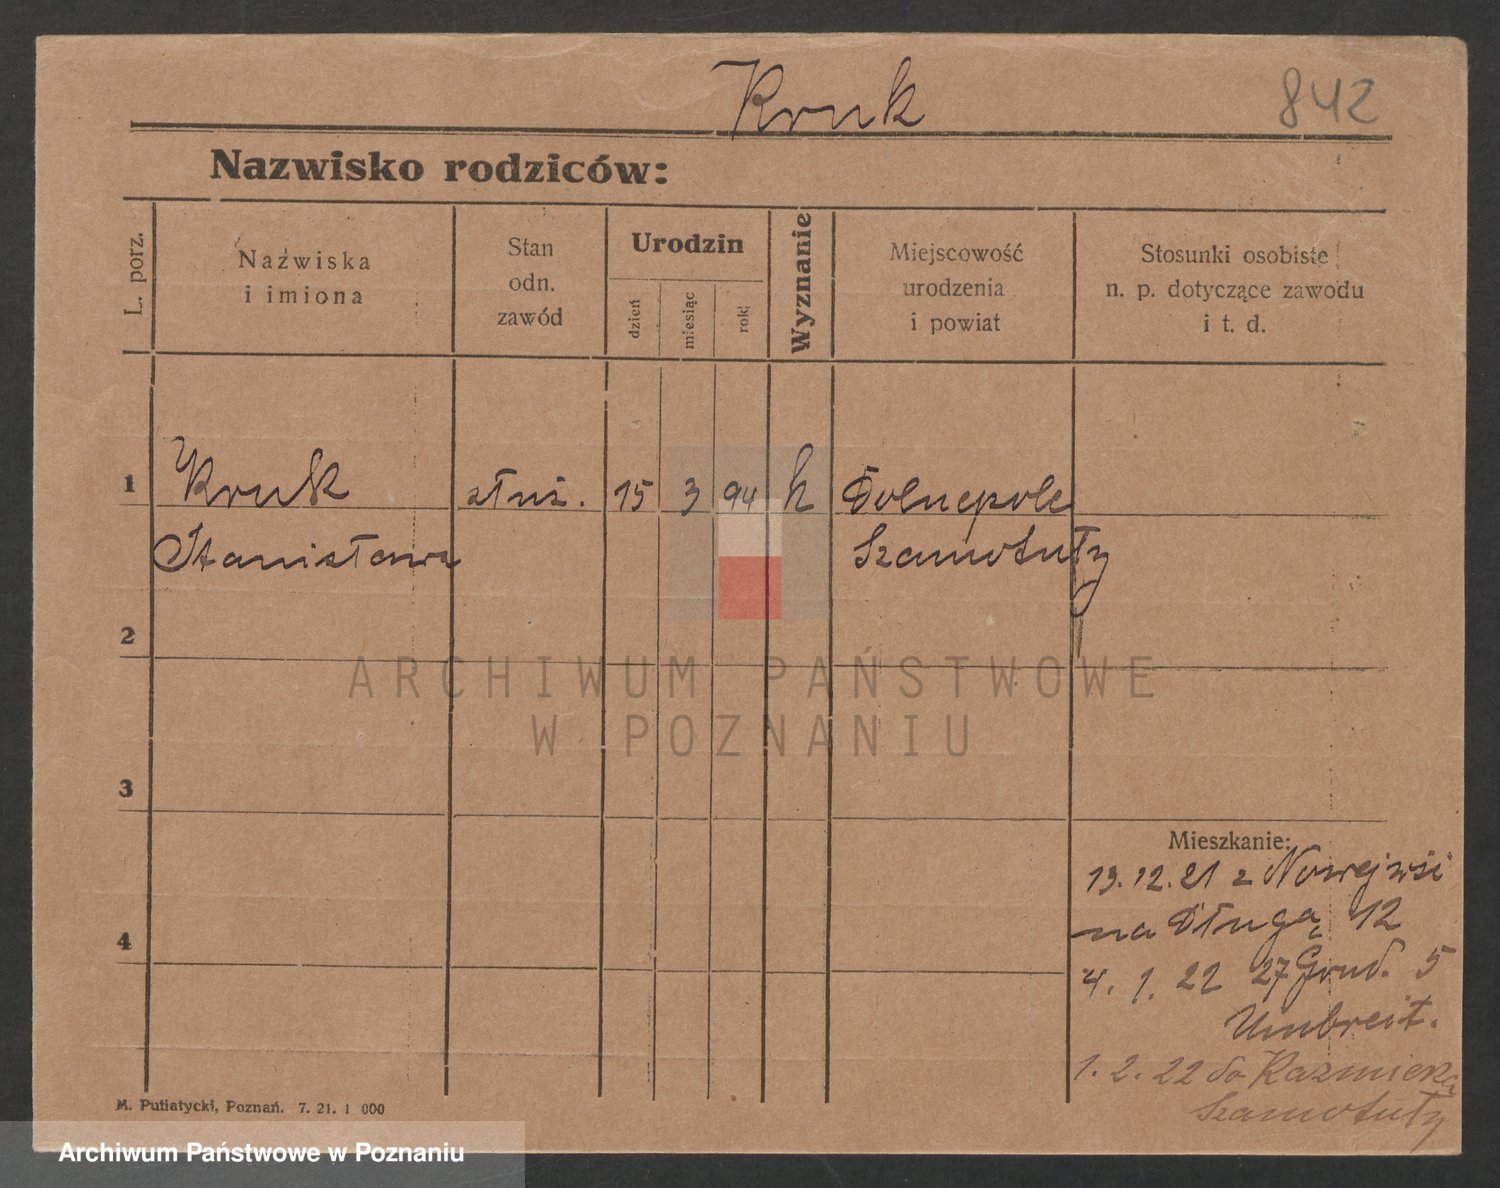 Kruk
842
Nazwisko rodziców:
L. porz.
Nazwiska
i imiona
Stan
odn.
zawód
Urodzin
dzień
miesiąc
rok
Wyznanie
Miejscowość
urodzenia
i powiat
Stosunki osobiste
n. p. dotyczące zawodu
i t. d.
1 Kruk służ. 15 3 94 k Dolnepole
Stanisława Szamotuły
2
ARCHIWUM PAŃSTWOWE
W POZNANIU
3
Mieszkanie:
13.12.21 z Nowejwsi
na Długą 12
4
4. 1. 22 27 Grud. 5
Umbreit.
1. 2. 22 do Kazmierza
Szamotuły
M. Putiatycki, Poznań. 7. 21. 1 000
Archiwum Państwowe w Poznaniu